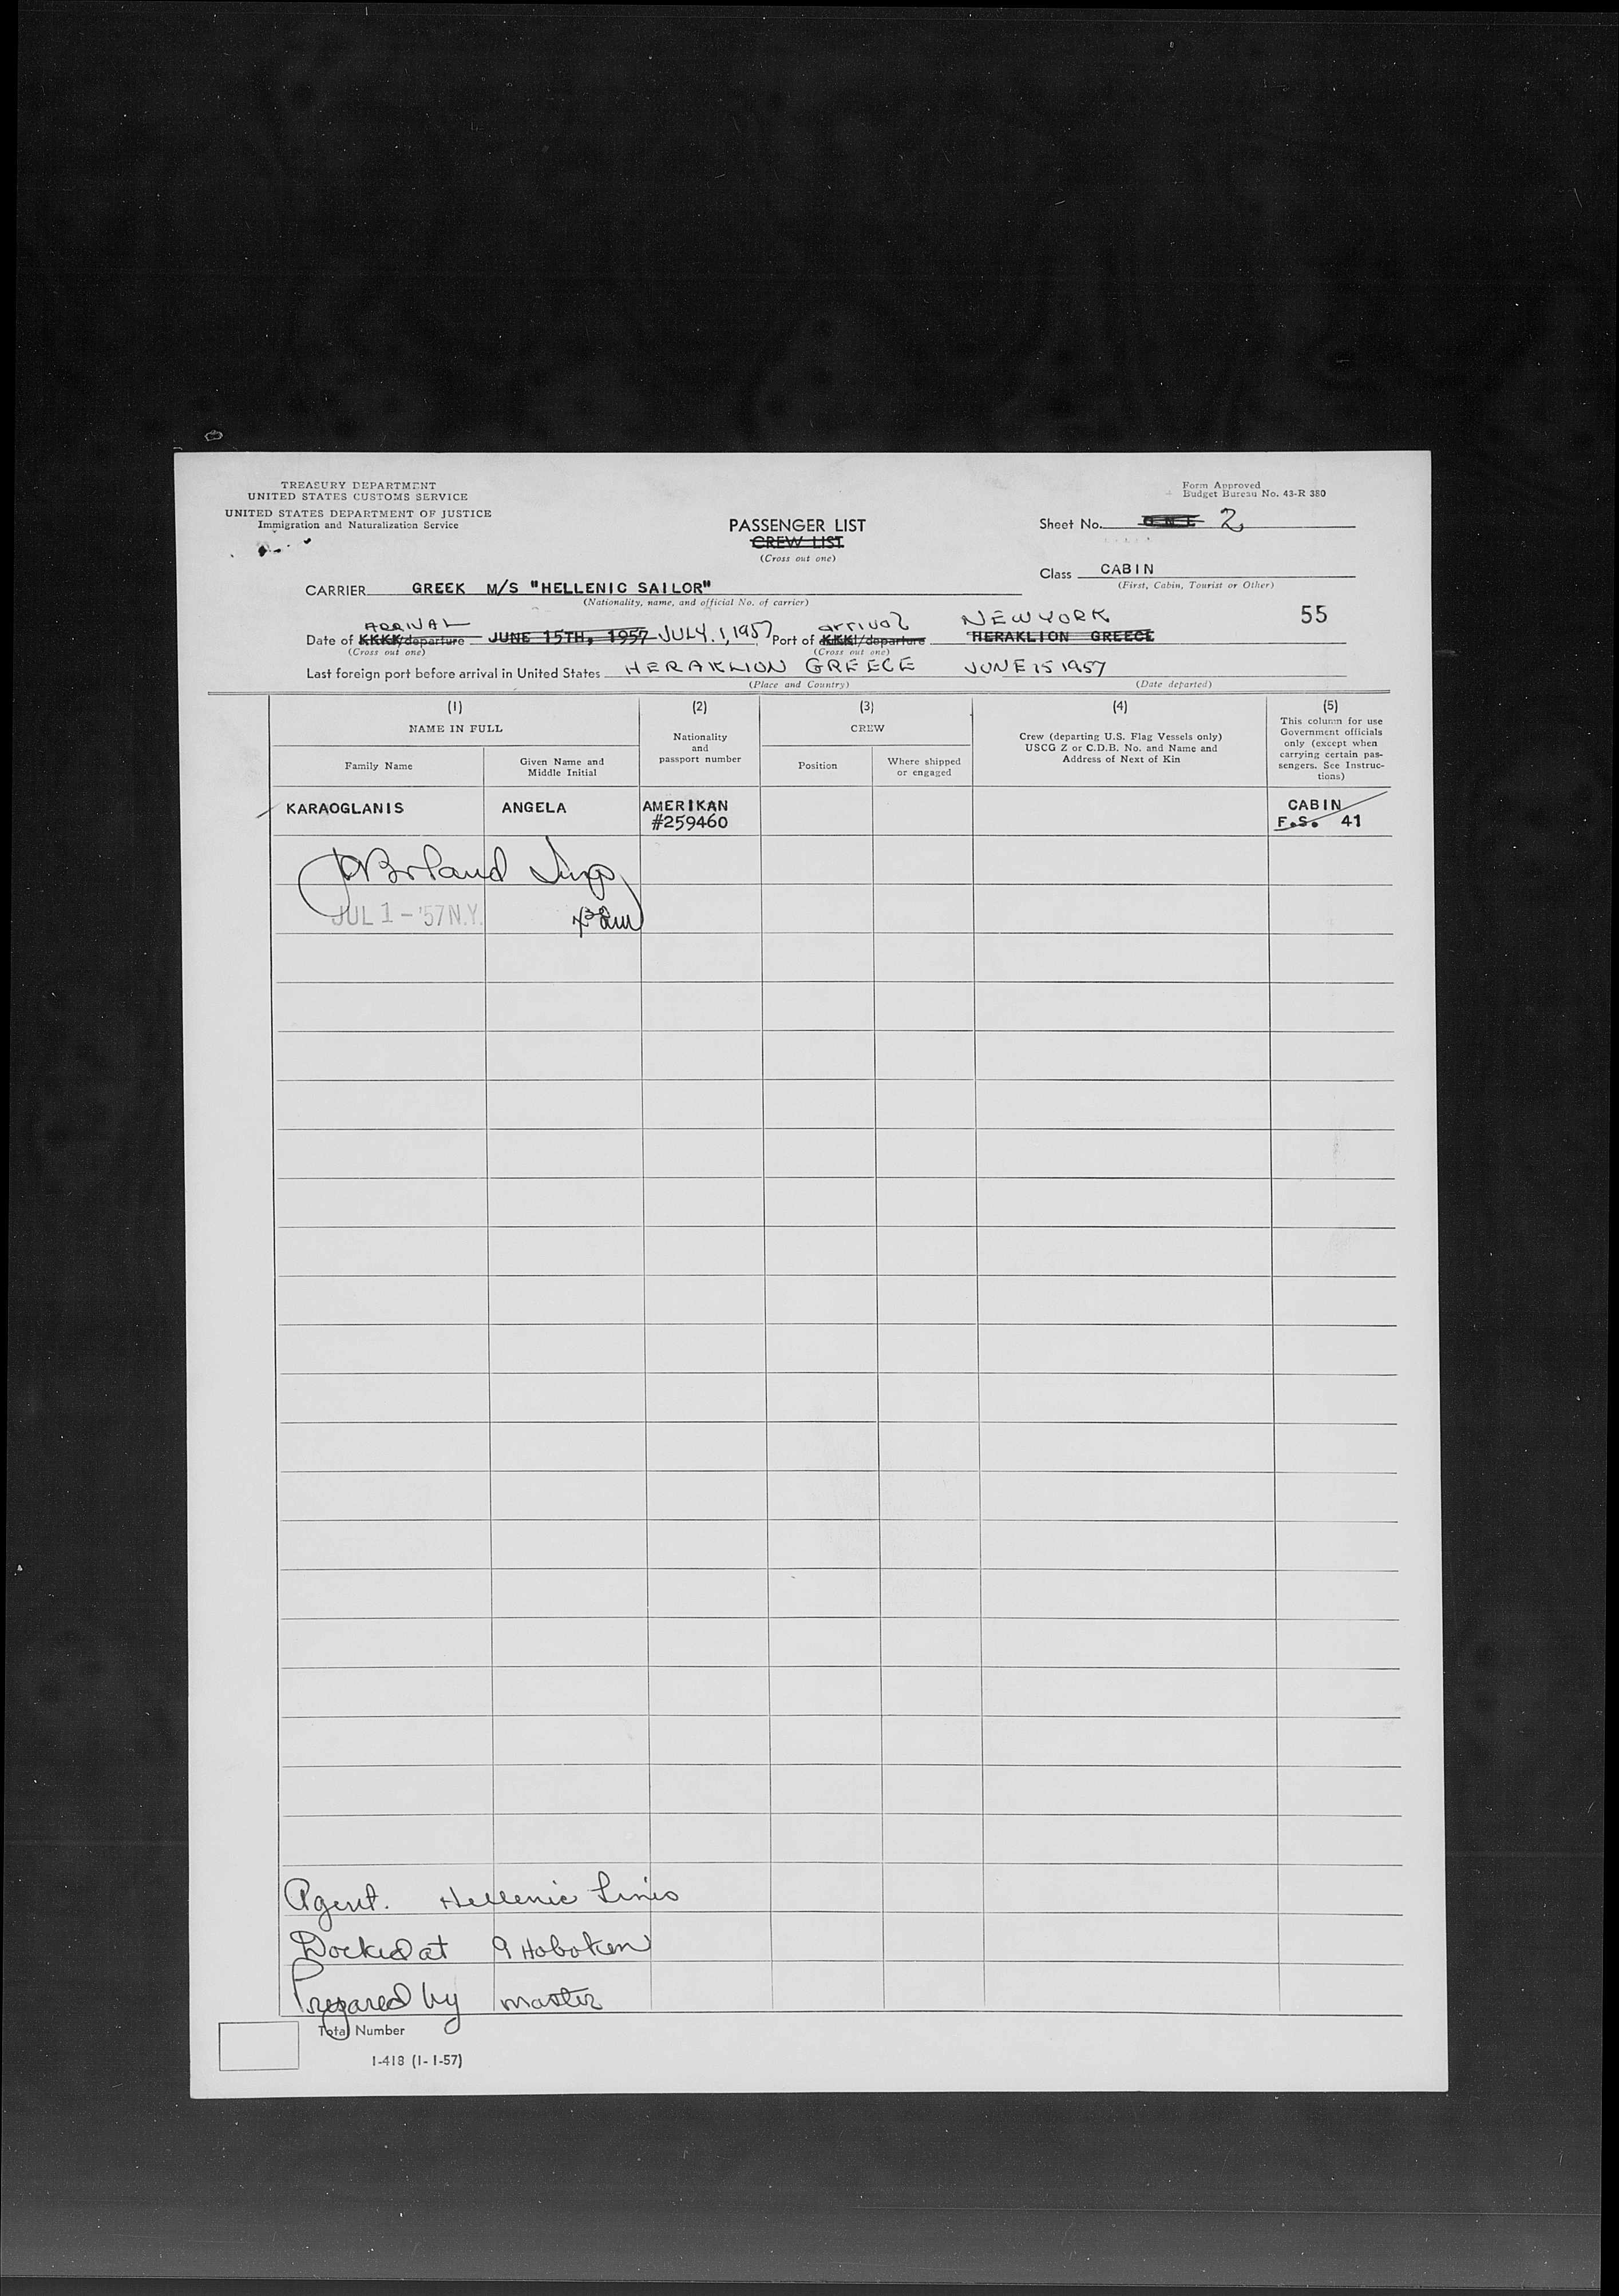 TREASURY DEPARTMENT
UNITED STATES CUSTOMS SERVICE
UNITED STATES DEPARTMENT OF JUSTICE
Immigration and Naturalization Service
Form Approved
Budget Bureau No. 43-R 380
PASSENGER LIST
CREW LIST
(Cross out one)
Sheet No. ONE 2
Class CABIN
(First, Cabin, Tourist or Other)
CARRIER GREEK M/S "HELLENIC SAILOR"
(Nationality, name, and official No. of carrier)
ARRIVAL arrival NEW YORK 55
Date of KKKK/departure JUNE 15TH, 1957 JULY. 1, 1957 Port of KKKK/departure HERAKLION GREECE
(Cross out one) (Cross out one)
Last foreign port before arrival in United States HERAKLION GREECE JUNE 15 1957
(Place and Country) (Date departed)
(1) (2) (3) (4) (5)
NAME IN FULL
Family Name
Given Name and
Middle Initial
Nationality
and
passport number
CREW
Position
Where shipped
or engaged
Crew (departing U.S. Flag Vessels only)
USCG Z or C.D.B. No. and Name and
Address of Next of Kin
This column for use
Government officials
only (except when
carrying certain pas-
sengers. See Instruc-
tions)
KARAOGLANIS ANGELA AMERIKAN CABIN
#259460 F.S. 41
JUL 1 - '57 N.Y.
Agent. Hellenic Lines
Docked at 9 Hoboken
Prepared by master
Total Number
I-418 (1-1-57)